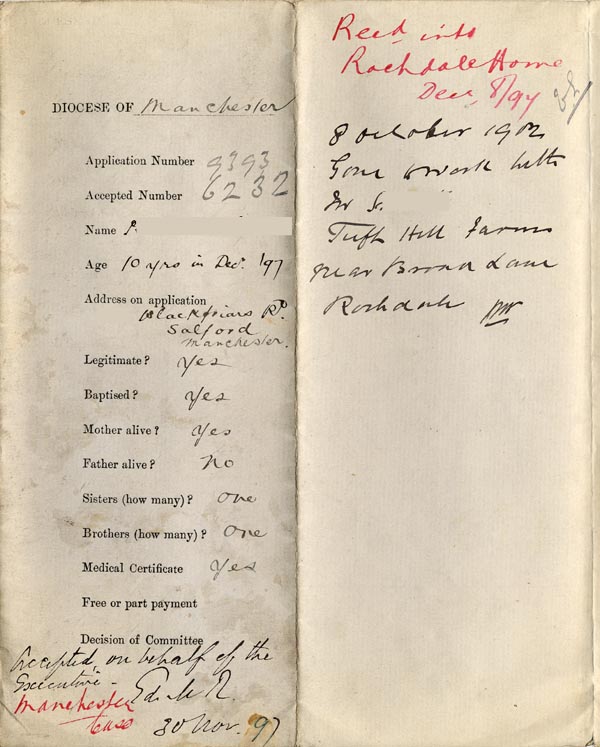 DIOCESE OF Manchester
Application Number 9393
Accepted Number 6232
Name
Age 10 yrs in Decr. '97
Address on application
Blackfriars Rd.
Salford
Manchester.
Legitimate? Yes
Baptised? Yes
Mother alive? Yes
Father alive? No
Sisters (how many)? One
Brothers (how many)? One
Medical Certificate Yes
Free or part payment
Decision of Committee
Accepted, on behalf of the
Executive -
Manchester
case
30 Nov. 97
Recd into
Rochdale Home
Dec 8/97
8 October 1902
Gone to work with
Mr
Tuft Hill Farm
near Broad Lane
Rochdale